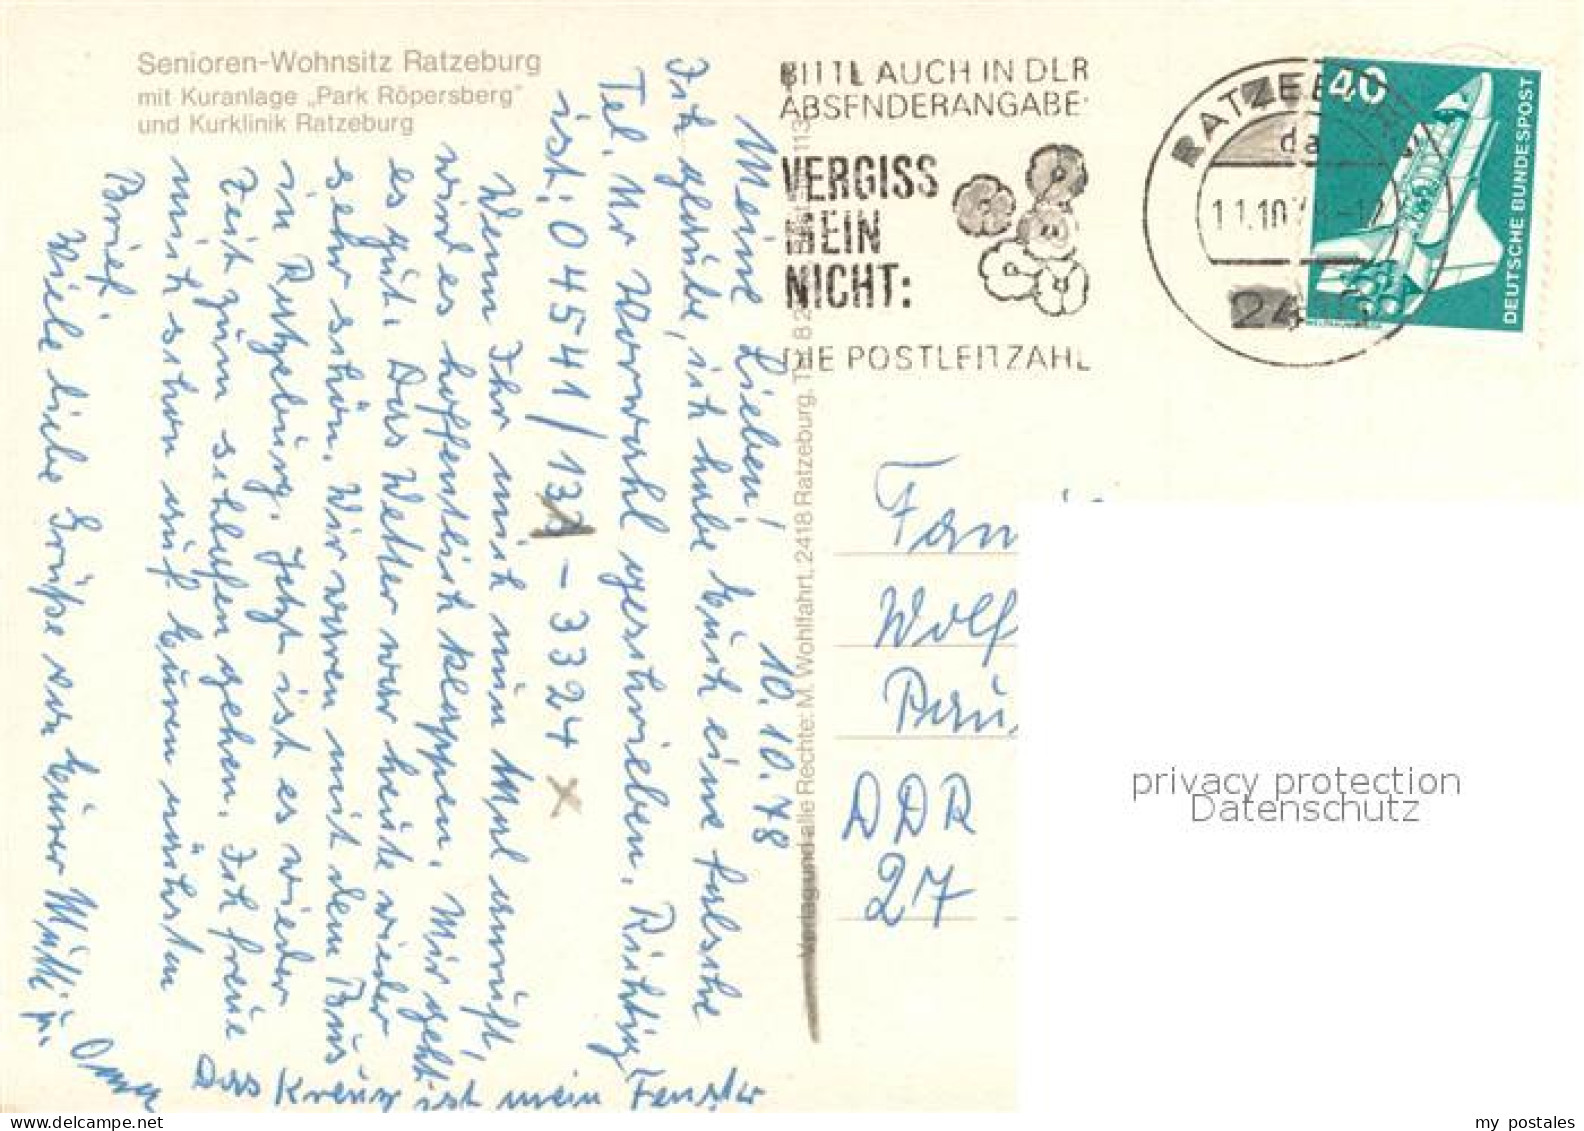 Senioren-Wohnsitz Ratzeburg
mit Kuranlage „Park Röpersberg"
und Kurklinik Ratzeburg
BITTE AUCH IN DER
ABSENDERANGABE
VERGISS
MEIN
NICHT:
DIE POSTLEITZAHL
RATZEB
da
11.10.78-12
24
40
DEUTSCHE BUNDESPOST
10.10.78
Meine Lieben!
Ich glaube, ich habe Euch eine falsche
Tel. Nr Vorwahl geschrieben. Richtig
ist: 04541/133-3324 x
Wenn Ihr mich nun mal anruft,
wird es hoffentlich klappen. Mir geht
es gut. Das Wetter war heute wieder
sehr schön. Wir waren mit dem Bus
in Ratzeburg. Jetzt ist es wieder
Zeit zum schlafen gehen. Ich freue
mich schon auf Euren nächsten
Brief.
Viele liebe Grüße von Eurer Mutti u.
Oma
Das Kreuz ist mein Fenster
Verlag und alle Rechte: M. Wohlfahrt, 2418 Ratzeburg,
Fam
Wolf
DDR
27
privacy protection
Datenschutz
my postales
www.delcampe.net